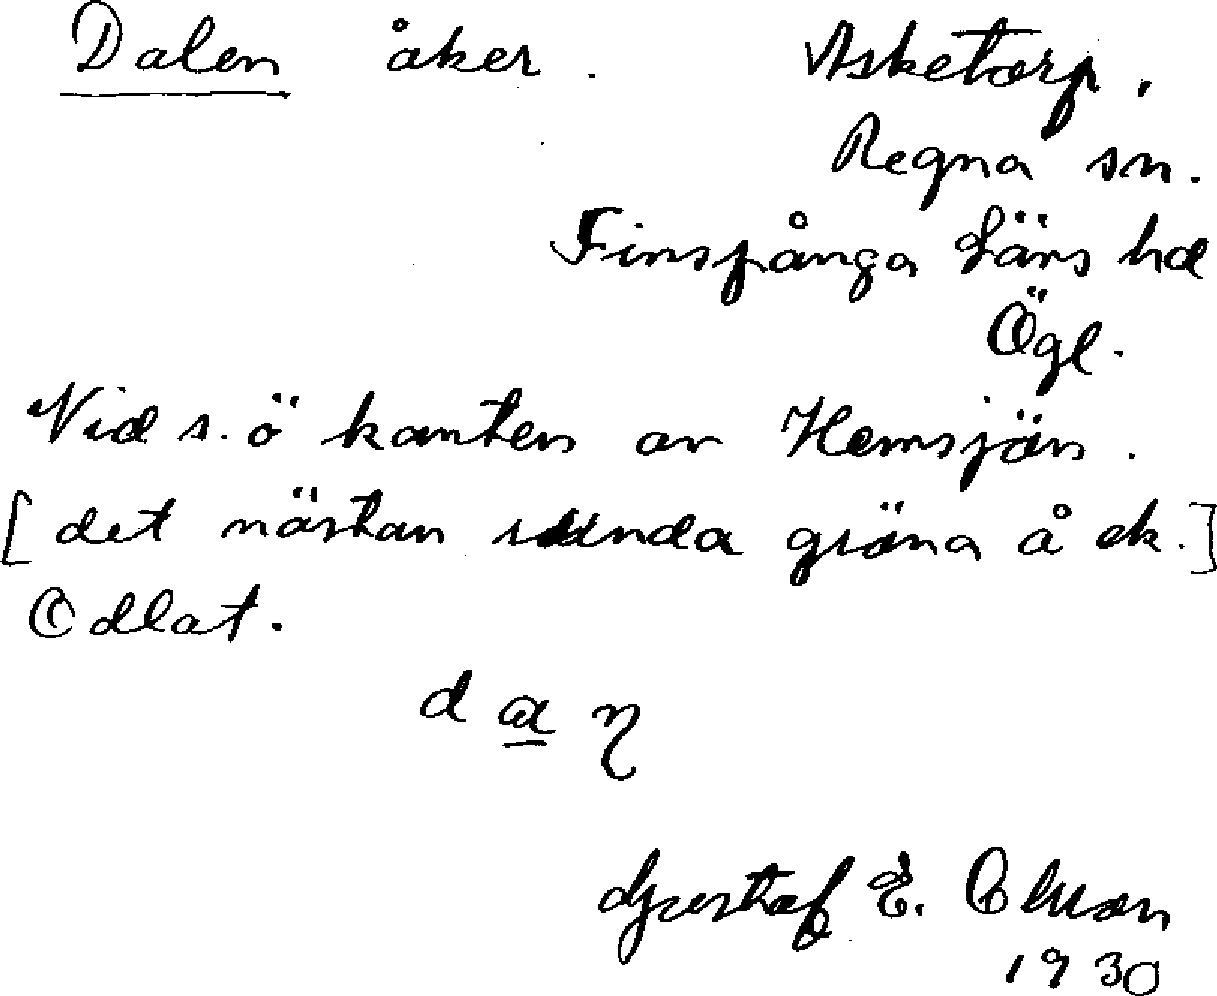 Dalen åker. Asketorp,
Regna sn.
Finspånga läns hd
Ögl.
Vid s.ö kanten av Hemsjön.
[det nästan runda gröna å ek.]
Odlat.
d a
Gustaf E. Olsson
1930